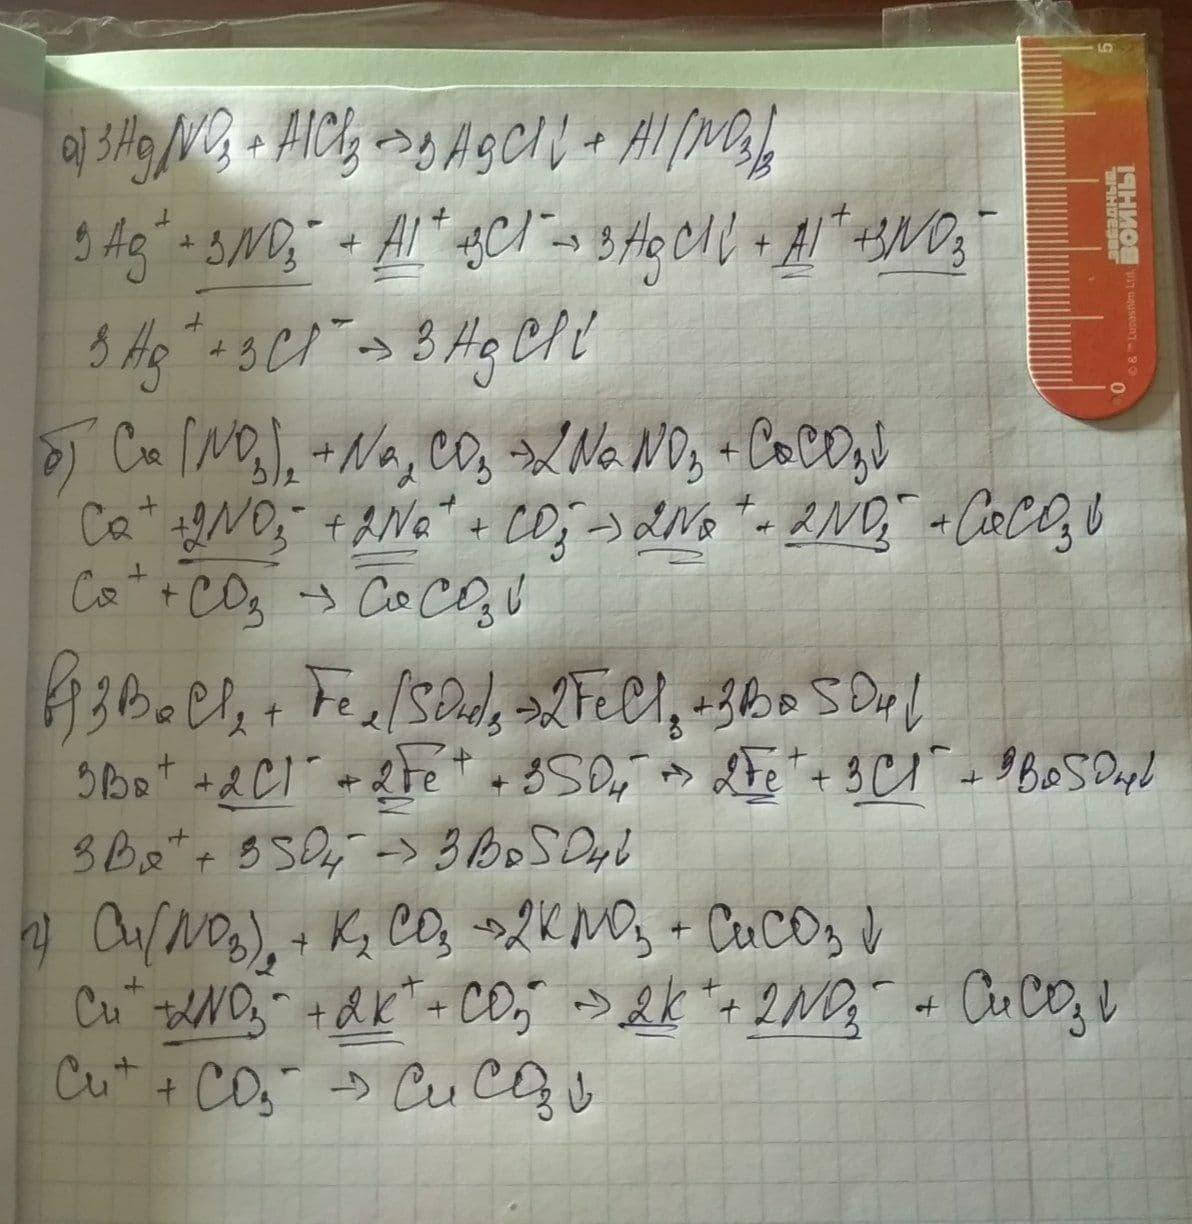 а) 3AgNO₃ + AlCl₃ → 3AgCl↓ + Al(NO₃)₃
3Ag⁺ + 3NO₃⁻ + Al⁺ + 3Cl⁻ → 3AgCl↓ + Al⁺ + 3NO₃⁻
3Ag⁺ + 3Cl⁻ → 3AgCl↓
б) Ca(NO₃)₂ + Na₂CO₃ → 2NaNO₃ + CaCO₃↓
Ca⁺ + 2NO₃⁻ + 2Na⁺ + CO₃⁻ → 2Na⁺ + 2NO₃⁻ + CaCO₃↓
Ca⁺ + CO₃ → CaCO₃↓
в) 3BaCl₂ + Fe₂(SO₄)₃ → 2FeCl₃ + 3BaSO₄↓
3Ba⁺ + 2Cl⁻ + 2Fe⁺ + 3SO₄⁻ → 2Fe⁺ + 3Cl⁻ + 3BaSO₄↓
3Ba⁺ + 3SO₄⁻ → 3BaSO₄↓
г) Cu(NO₃)₂ + K₂CO₃ → 2KNO₃ + CuCO₃↓
Cu⁺ + 2NO₃⁻ + 2K⁺ + CO₃⁻ → 2K⁺ + 2NO₃⁻ + CuCO₃↓
Cu⁺ + CO₃⁻ → CuCO₃↓
5
ЗВЕЗДНЫЕ
ВОЙНЫ
© & ™ Lucasfilm Ltd.
0